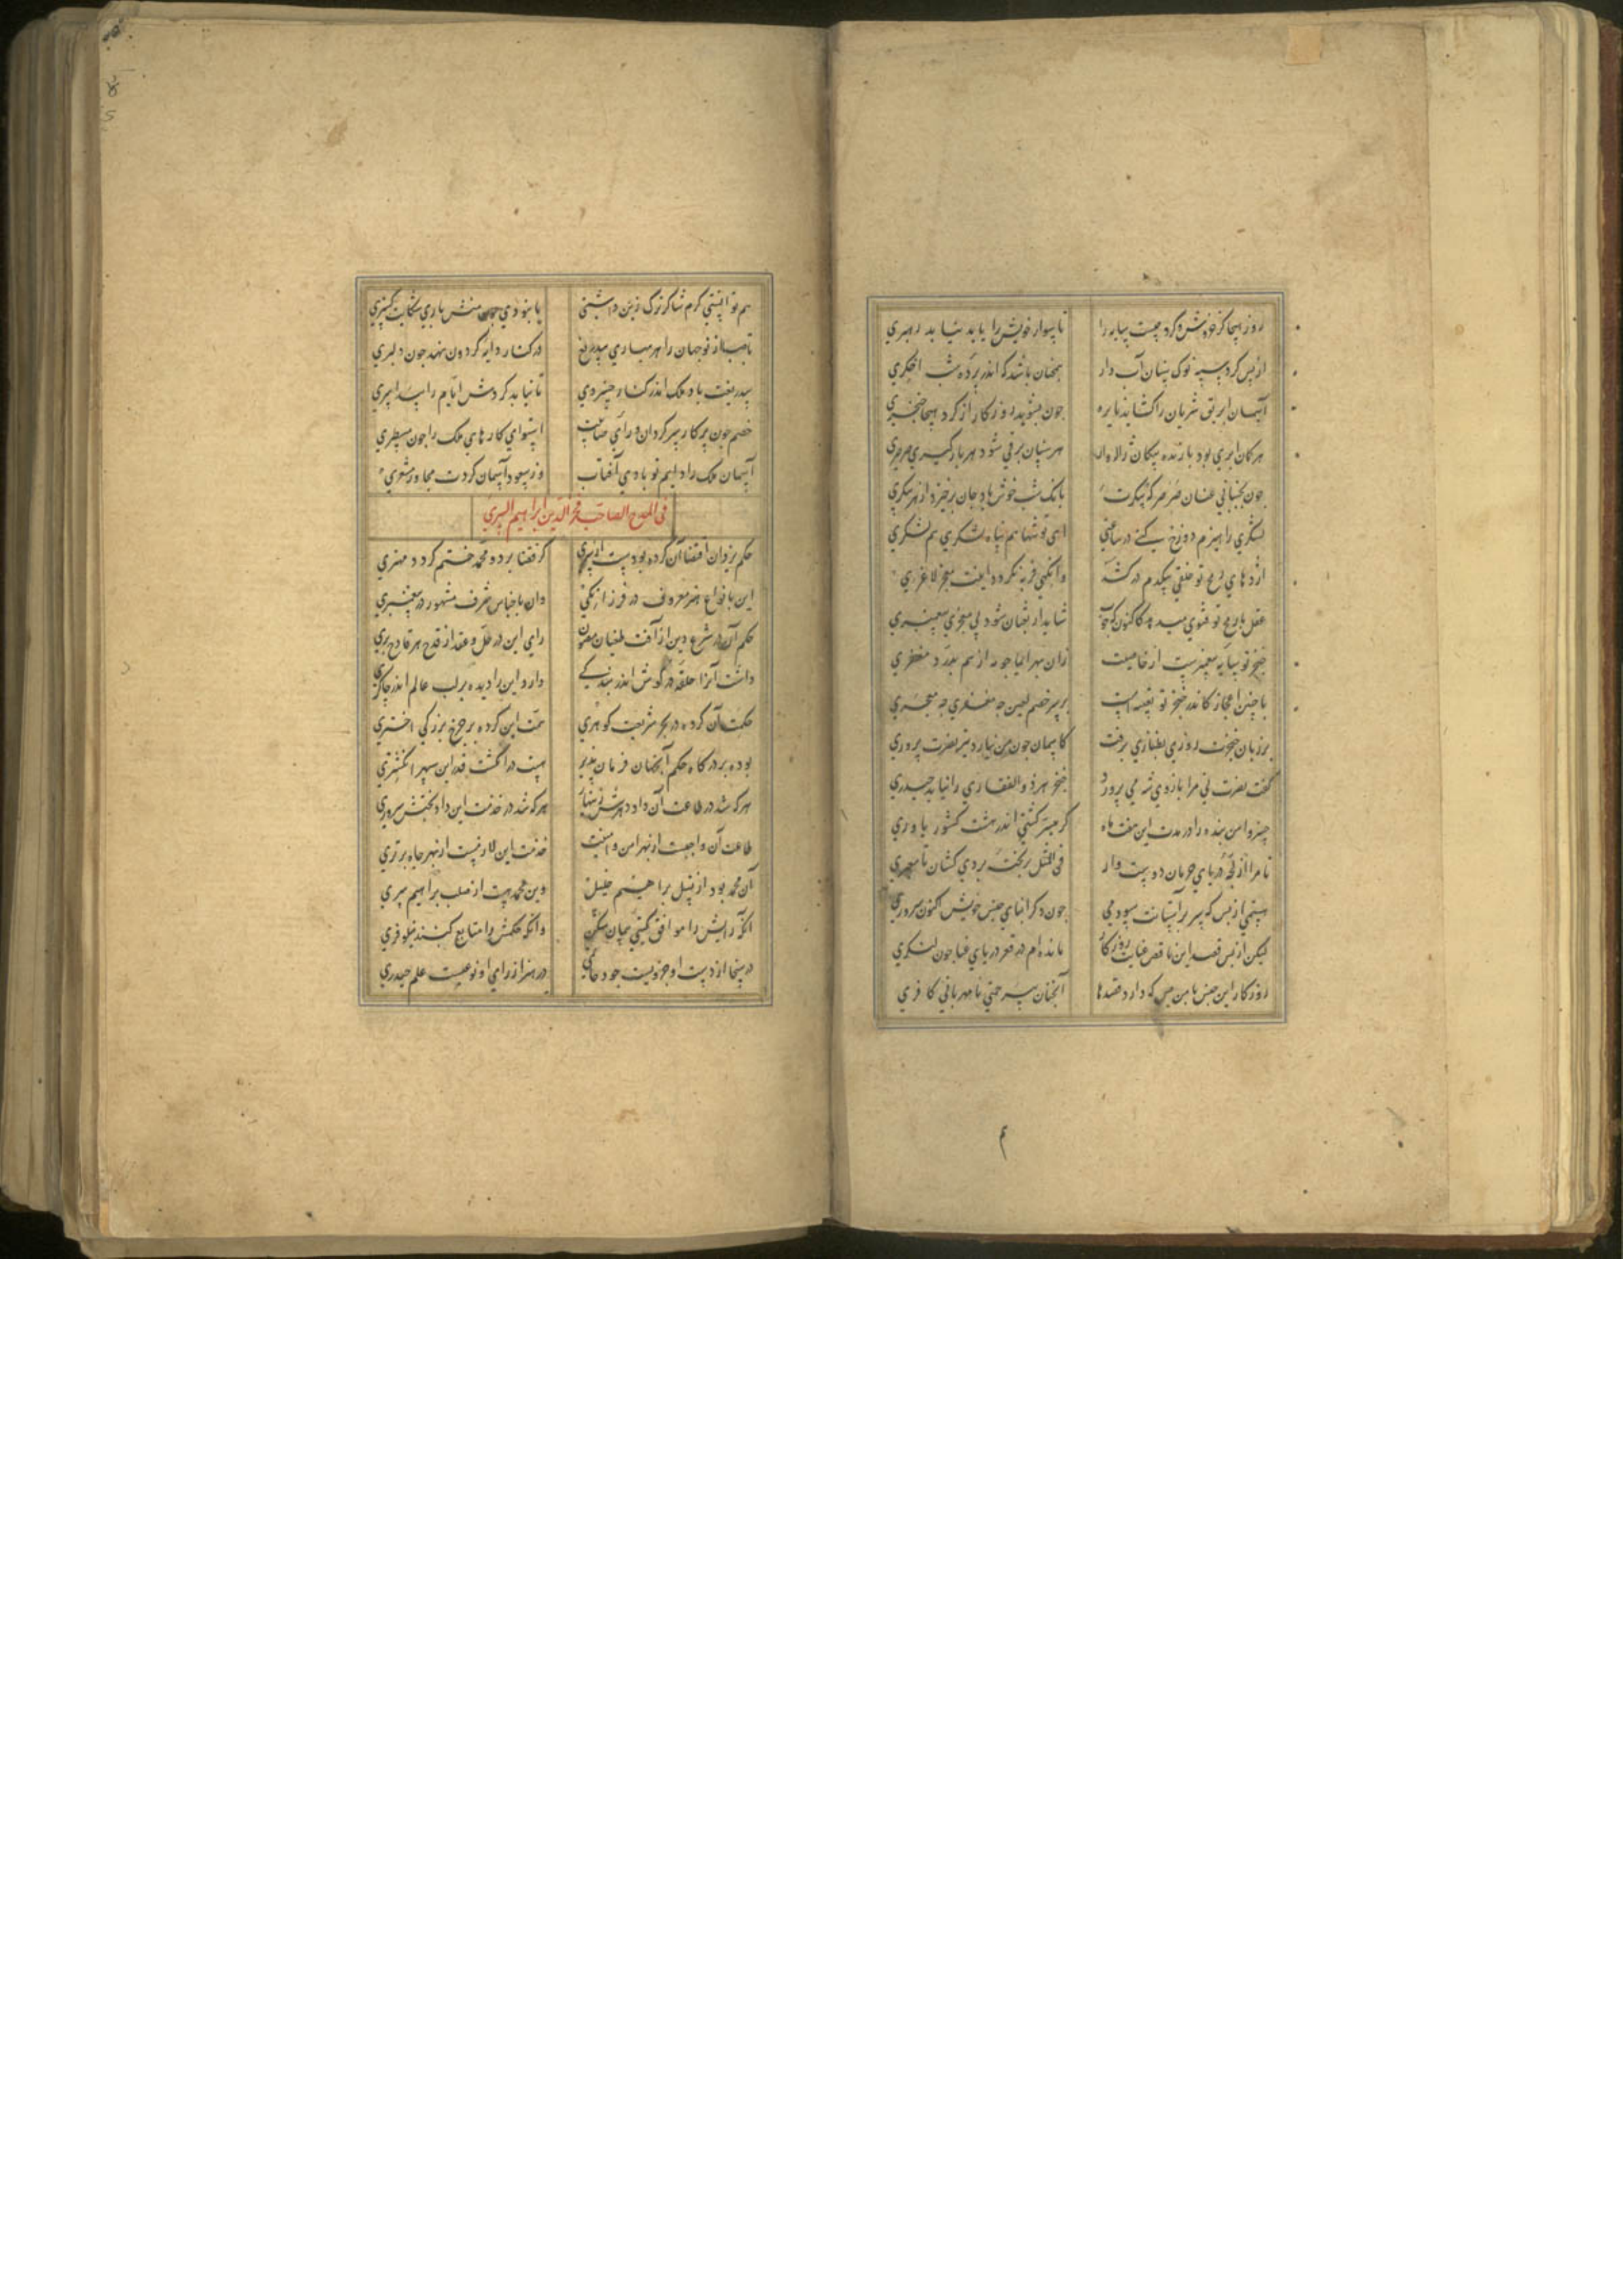 روز هیجا کز خروش و کرد جیست سایه را تا سوار خویش را یابد نیابد رهبری
از پس کرد سیه نوک سنان آب دار همجنان باشد که اندر پرده شب اخکری
آسمان ابریق شریان را کشاید نایره جون بشوید روزکار از کرد هیجا خنجری
هر کمان ابری بود بارنده پیکان ژاله وار هر سنان برقی شود هر بارکیری صرصری
جون بجنبانی عنان صرصر که پیکرت بانک شب خوش باد جان برخیزد از هر پیکری
لشکری را هیزم دوزخ کنی در ساعتی ای تو تنها هم پناه لشکری هم لشکری
اژدهای رمح تو خلقی بیکدم درکشد وانکهی فربه نکردد اینت معجز لاغری
عقل با رمح تو فتوی میدهد کاکنون شاید ار ثعبان شود بی معجزی بیغمبری
خنجر تو سایه بیغمبریست از خاصیت زان بهر ایما جو مه از هم بدرد مغفری
با جنین اعجاز کاندر خنجر تو تعبیه است بر سر خصم لعین جه مغفری جه معجری
بر زبان خنجرت روزی بطنازی برفت کاسمان جون من نیارد نیز نصرت پروری
کفت نصرت نی مرا بازوی شه می پرورد خنجر هر ذوالفقاری را نیابد حیدری
خسروا من بنده را در مدت این هفت ماه کر میسر کشتی اندر هشت کشور یاوری
تا مرا از لجه دریای حرمان دوست وار فی المثل بر تختۀ بردی کشان تا معبری
نیستمی از بس که سر بر آستانت سودمی جون دکر ابنای جنس خویش اکنون سروری
لیکن از بس قصد این ناقص عنایت روزکار مانده ام در قعر دریای عنا جون لنکری
روزکار این جنس با من بس که دارد قصدها آنجنان بی رحمتی نامهربانی کافری
هم توانستی کرم شاکرترک زین داشتی یا نبودی در جهان منش باری شکایت کستری
تا صبا از نو جهان را هر بهاری بیدریغ در کنار دایه کردون نهد جون دلبری
بیدریغت باد ملک اندر کنار خسروی تا نیابد کردش ایام را بیدا سری
خصم جون برکار سرکردان و رای صائبت استوای کارهای ملک را جون مسطری
آسمان ملک را دایم تو بادی آفتاب وز سعود آسمان کردت مجاور مشتری
فی المدح الصاحب فخر الدین ابراهیم السری
حکم یزدان اقتضا آن کرده بود بیست از سری کز قضا بر دو محمد ختم کردد مهتری
این بانواع هنر معروف در فرزانکی وان باجناس شرف مشهور در بیغمبری
حکم آن در شرع دین از آفت طغیان مصون رای این در حل و عقد از قدح هر قادح بری
داشت آنرا حلقه در کوش اندر بندکی دارد این را دیده بر لب عالم اندر جاکری
حکمت آن کرده در بحر شریعت کوهری همت این کرده بر جرخ بزرکی اختری
بوده بر درکاه حکم آنجهان فرمان بذیر هست در انکشت قدر این سپهر انکشتری
هر که شد در طاعت آن داد دهرش زینهار هر که شد در خدمت این داد بختش سروری
طاعت آن واجبست از بهر امن و عافیت خدمت این لازمست از بهر جاه و برتری
آن محمد بود از نسل براهیم خلیل وین محمد هست از صلب براهیم سری
آنکه رایش را موافق کشتی بمان سکنی وانکه حکمش را متابع کنبد نیلوفری
در سخا از دست او جزویست جود حاتمی در هنر از رای او نوعیست علم حیدری